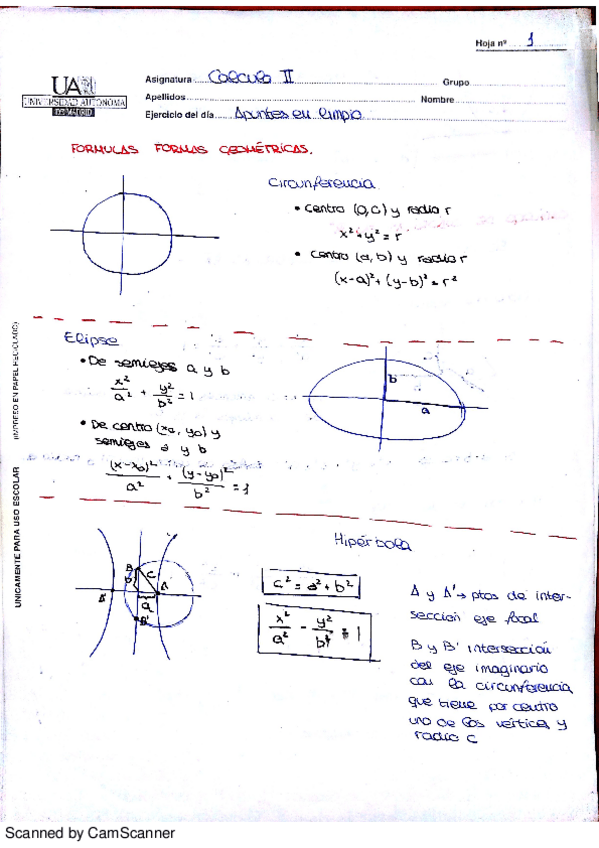 Hoja nº 1
UA
UNIVERSIDAD AUTONOMA
DE MADRID
Asignatura Calculo II Grupo
Apellidos Nombre
Ejercicio del día Apuntes en limpio
FORMULAS FORMAS GEOMÉTRICAS.
Circunferencia
• centro (0,0) y radio r
x² + y² = r
• centro (a, b) y radio r
(x-a)² + (y-b)² = r²
Elipse
• De semiejes a y b
x²/a² + y²/b² = 1
• De centro (x₀, y₀) y
semiejes a y b
(x-x₀)²/a² + (y-y₀)²/b² = 1
b
a
Hipérbola
B
b
c
A
A'
a
B'
c² = a² + b²
x²/a² - y²/b² = 1
A y A' → ptos de inter-
sección eje focal
B y B' intersección
del eje imaginario
con la circunferencia
que tiene por centro
uno de los vértices y
radio c
UNICAMENTE PARA USO ESCOLAR (IMPRESO EN PAPEL RECICLADO)
Scanned by CamScanner